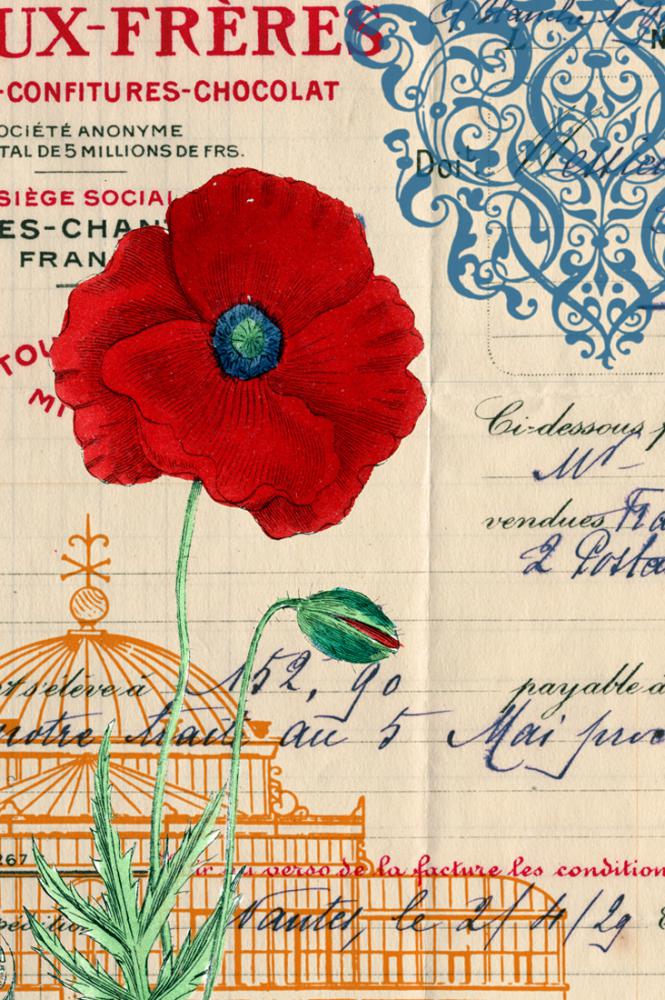 UX-FRÈRES
-CONFITURES-CHOCOLAT
OCIÉTÉ ANONYME
TAL DE 5 MILLIONS DE FRS.
SIÈGE SOCIAL
ES-CHAN
FRAN
Doit
TOU
MI
Ci-dessous
Mr
vendues
2 Posta
et s'élève à 152,90 payable à
notre traite au 5 Mai proc
267
au verso de la facture les condition
Nantes, le 2/4/29